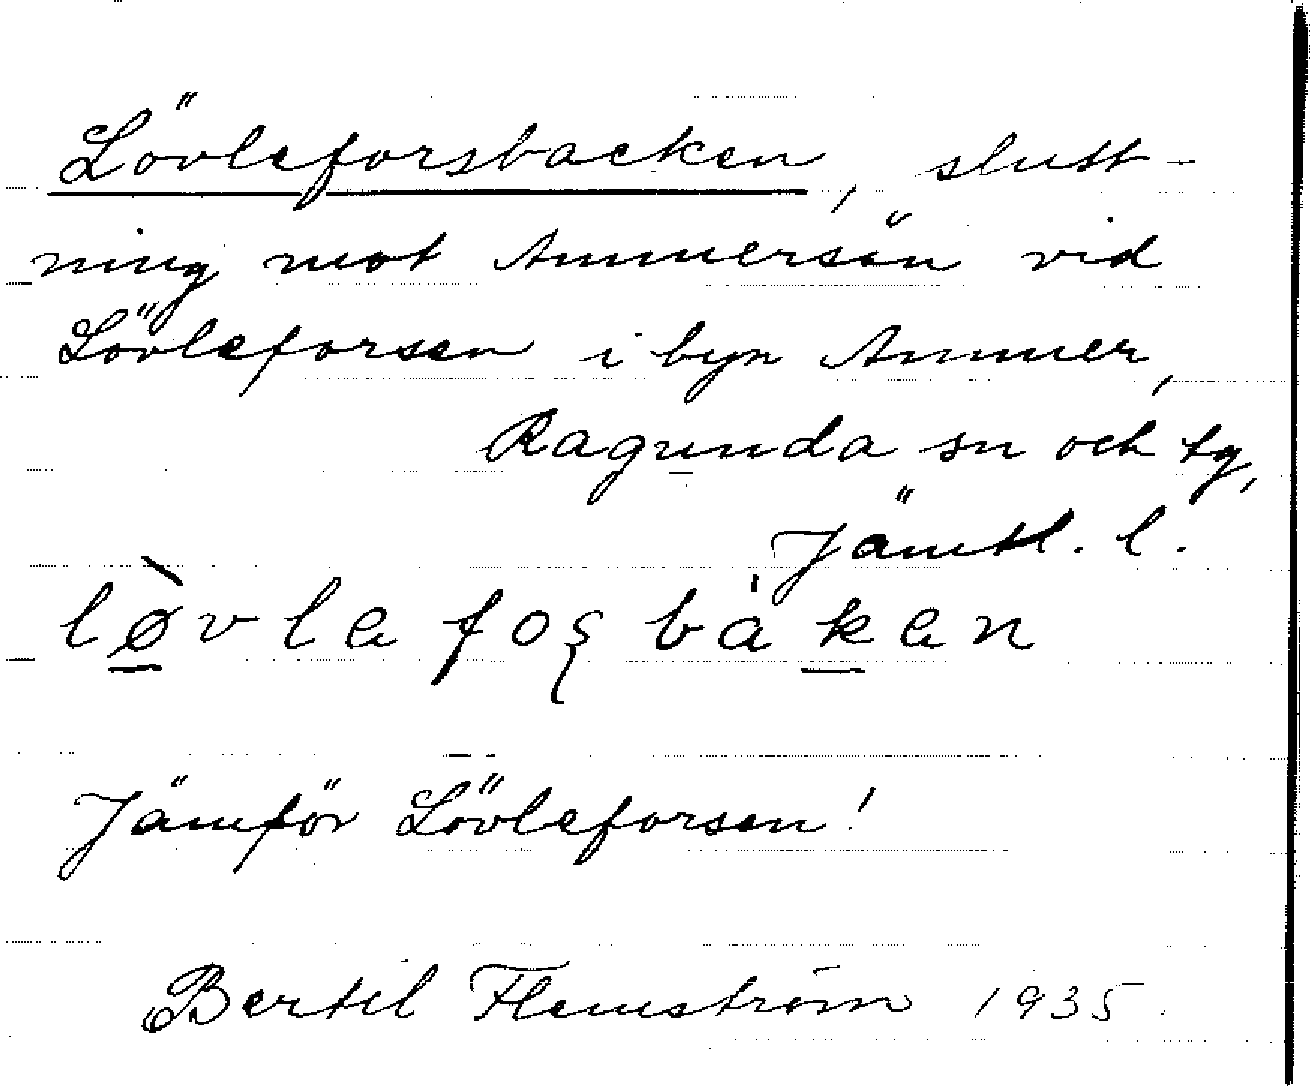 Lövleforsbacken, slutt-
ning mot Ammersön vid
Lövleforsen i byn Ammer,
Ragunda sn och tg,
Jämtl. l.
lø̀vlefoʂbáken
Jämför Lövleforsen!
Bertil Flemström 1935.